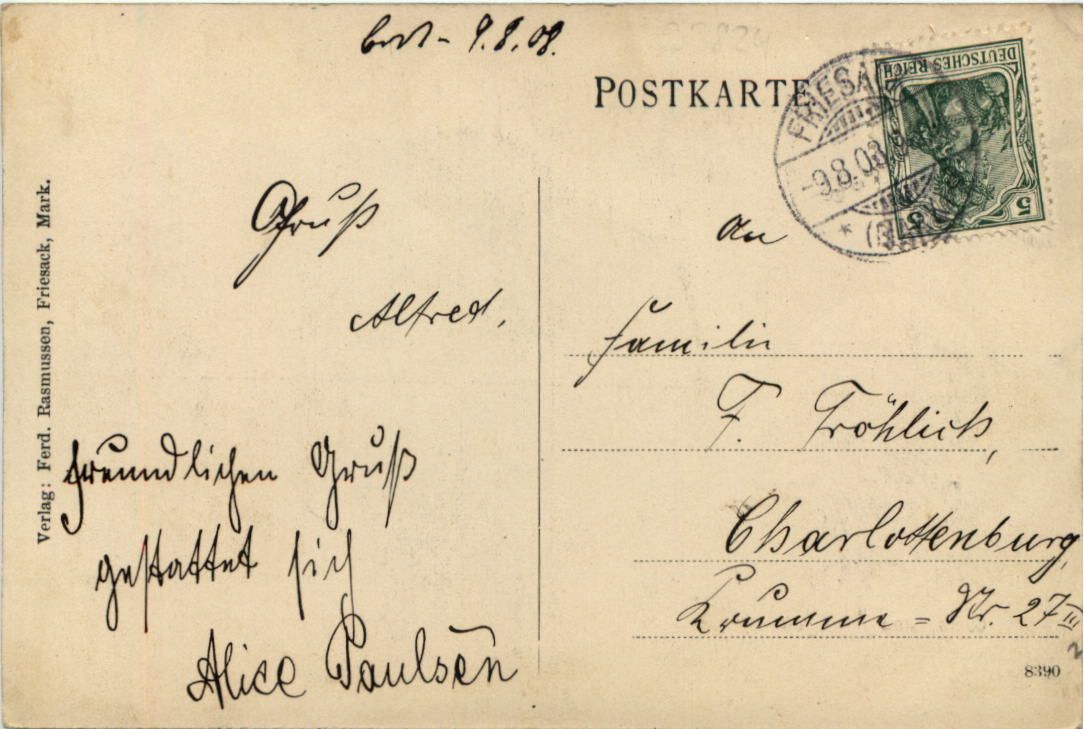 9.8.08.
POSTKARTE
DEUTSCHES REICH
5 5
FRIESA
-9.8.08.
* (
Gruß
Alfred.
freundlichen Gruß
gestattet sich
Alice Paulsen
An
Familie
F. Fröhlich,
Charlottenburg,
Krumme = Str. 27 III
8390
Verlag: Ferd. Rasmussen, Friesack, Mark.